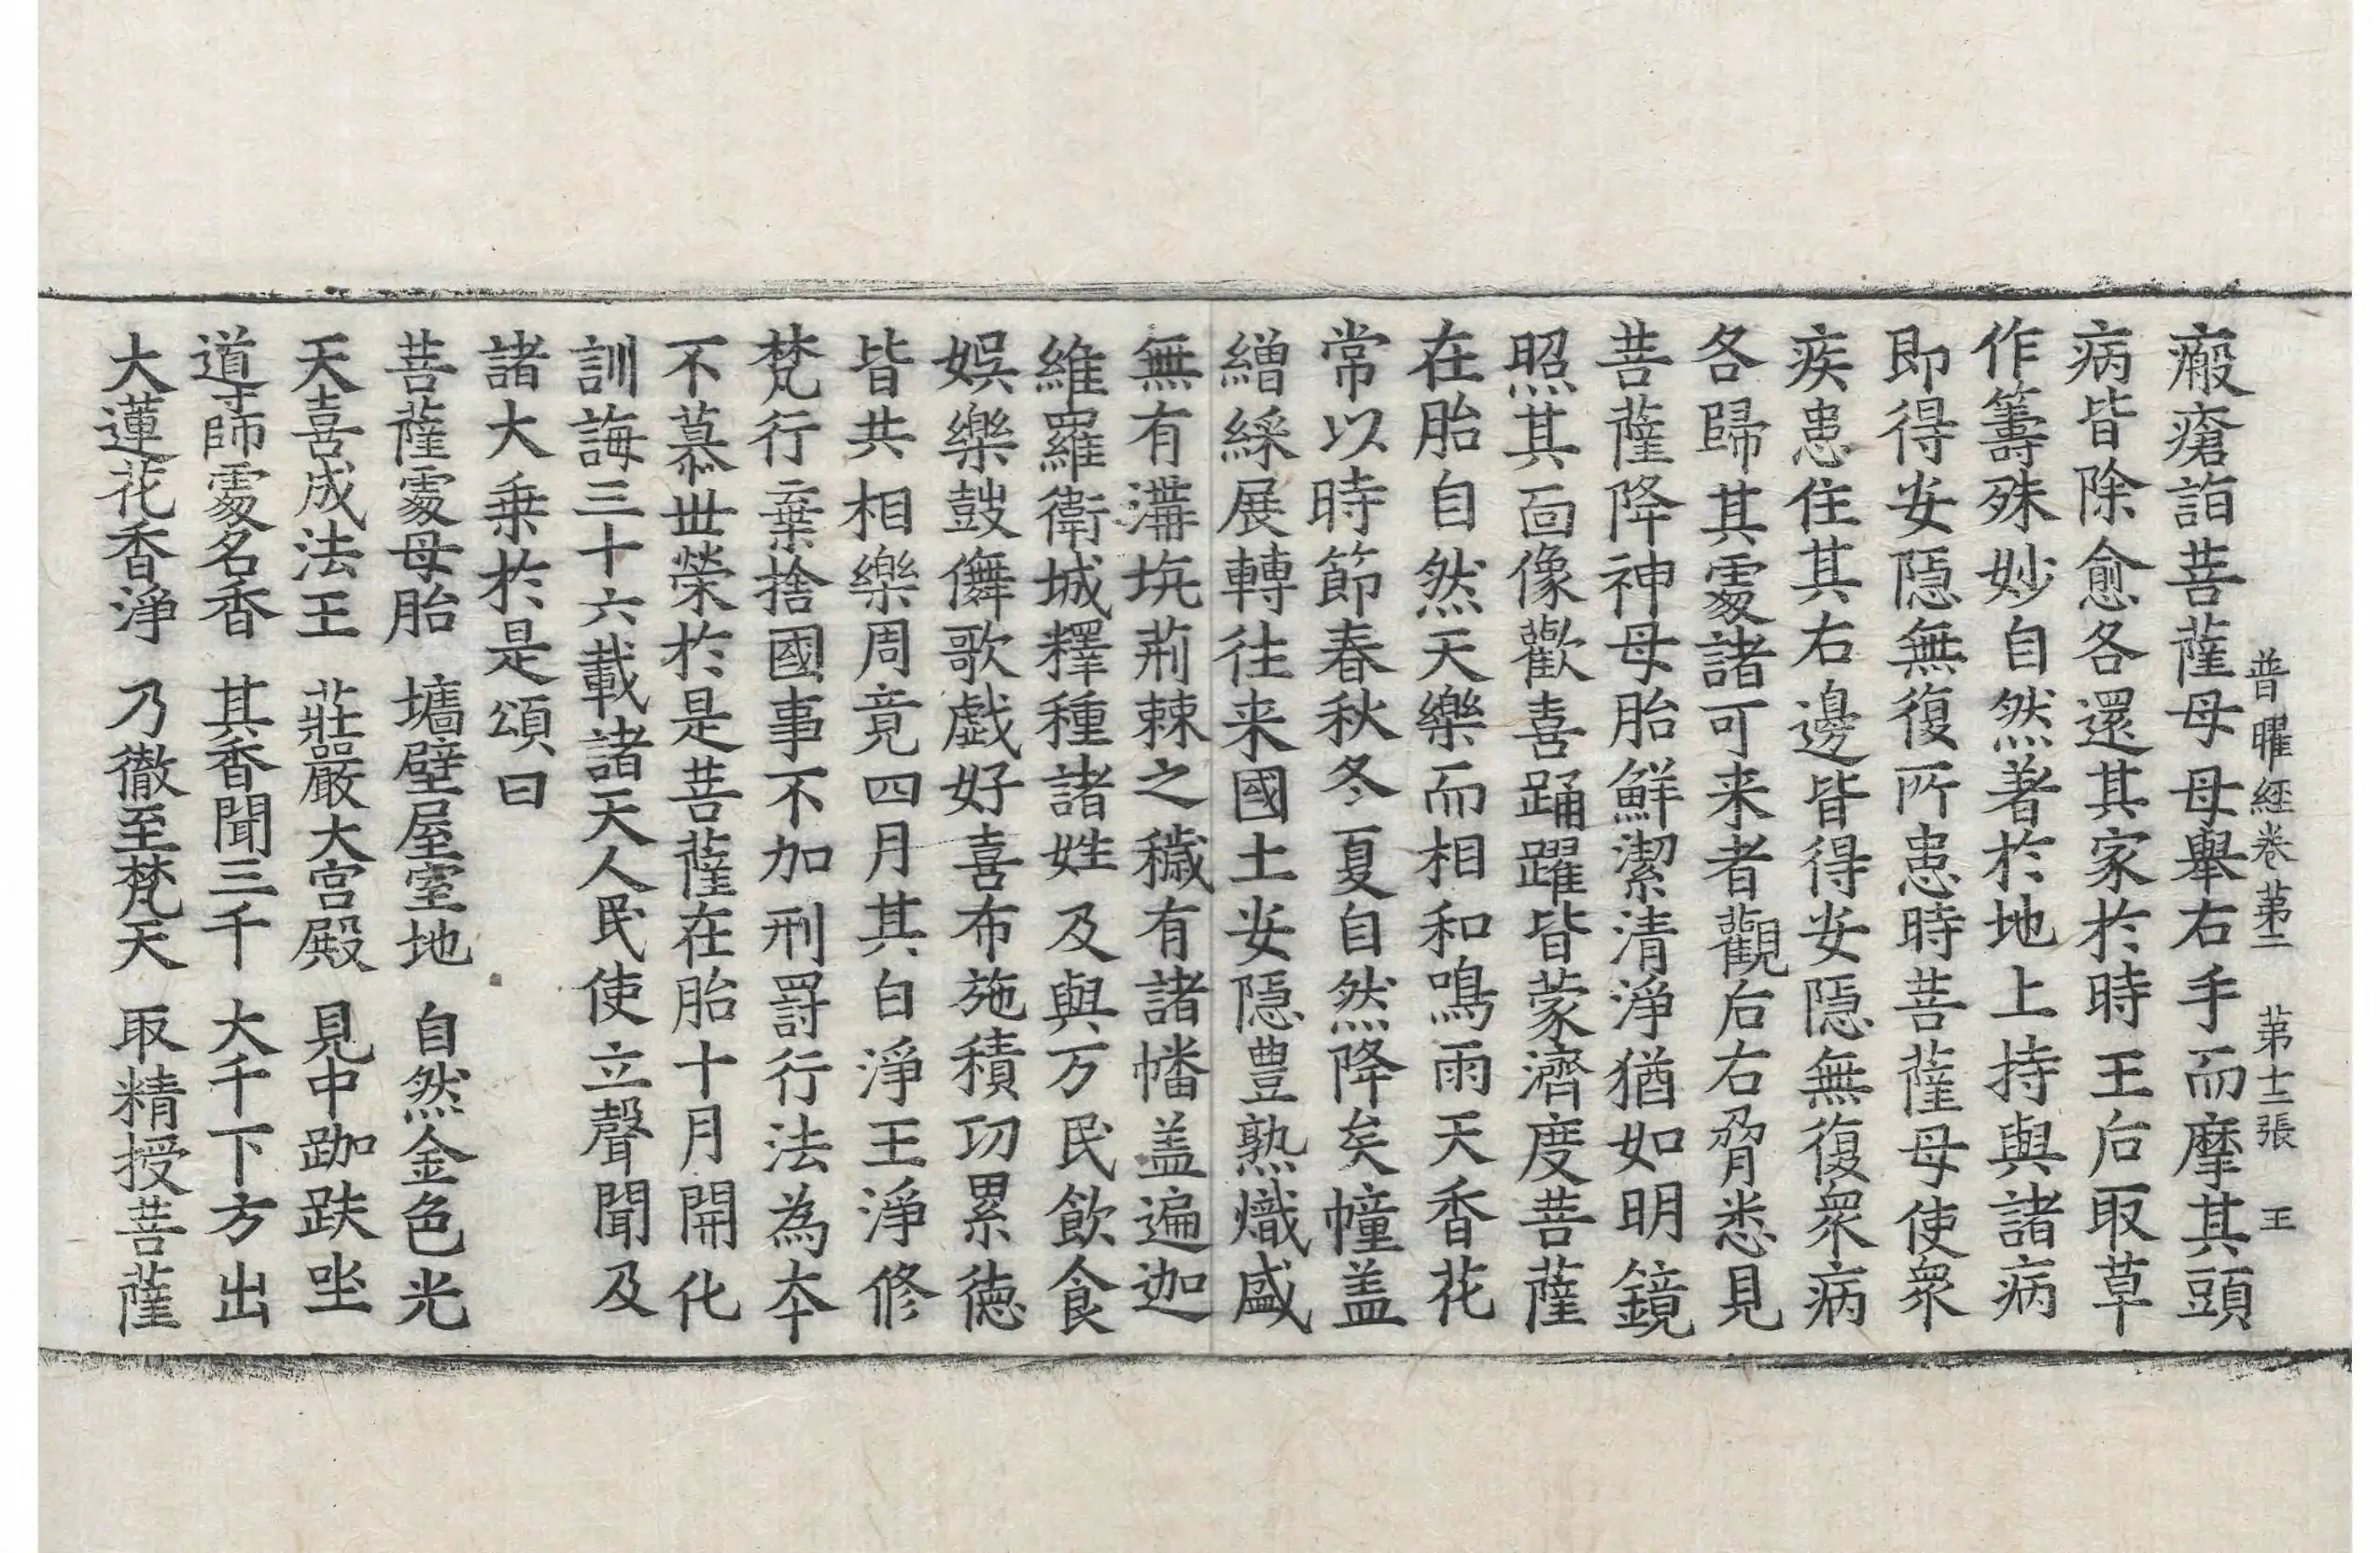 普曜經卷第二 第十二張 王
瘢瘡詣菩薩母母舉右手而摩其頭
病皆除愈各還其家於時王后取草
作籌殊妙自然著於地上持與諸病
即得安隱無復所患時菩薩母使衆
疾患住其右邊皆得安隱無復衆病
各歸其處諸可来者觀后右脅悉見
菩薩降神母胎鮮潔清淨猶如明鏡
照其面像歡喜踊躍皆蒙濟度菩薩
在胎自然天樂而相和鳴雨天香花
常以時節春秋冬夏自然降矣幢盖
繒綵展轉往来國土安隱豊熟熾盛
無有溝坑荊棘之穢有諸幡盖遍迦
維羅衛城釋種諸姓及與万民飲食
娛樂鼓儛歌戲好喜布施積功累徳
皆共相樂周竟四月其白淨王淨修
梵行棄捨國事不加刑罸行法為本
不慕丗榮於是菩薩在胎十月開化
訓誨三十六載諸天人民使立聲聞及
諸大乗於是頌曰
菩薩處母胎 墻壁屋室地 自然金色光
天喜成法王 莊嚴大宮殿 見中跏趺坐
導師處名香 其香聞三千 大千下方出
大蓮花香淨 乃徹至梵天 取精授菩薩